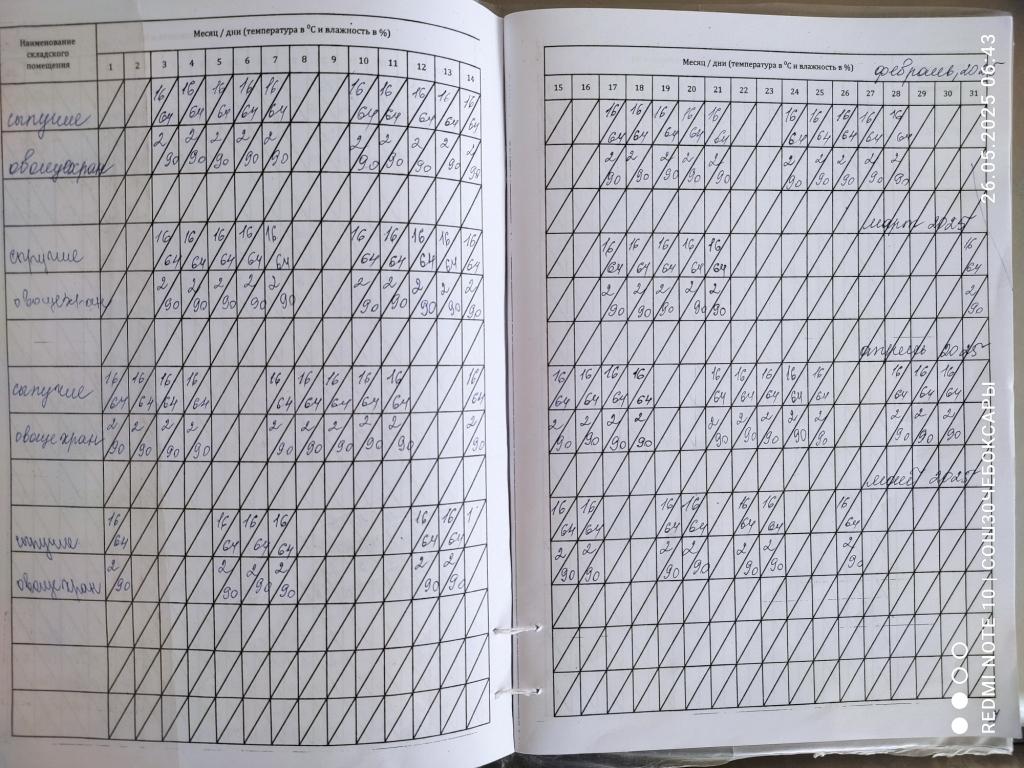 Наименование
складского
помещения
Месяц / дни (температура в °С и влажность в %)
1 2 3 4 5 6 7 8 9 10 11 12 13 14
сыпучие 16/64 16/64 16/64 16/64 16/64 16/64 16/64 16/64 16/64 16/64
овощехран 2/90 2/90 2/90 2/90 2/90 2/90 2/90 2/90 2/90 2/90
сыпучие 16/64 16/64 16/64 16/64 16/64 16/64 16/64 16/64 16/64 16/64
овощехран 2/90 2/90 2/90 2/90 2/90 2/90 2/90 2/90 2/90 2/90
сыпучие 16/64 16/64 16/64 16/64 16/64 16/64 16/64 16/64 16/64 16/64
овощехран 2/90 2/90 2/90 2/90 2/90 2/90 2/90 2/90 2/90 2/90
сыпучие 16/64 16/64 16/64 16/64 16/64 16/64
овощехран 2/90 2/90 2/90 2/90 2/90 2/90
Месяц / дни (температура в °С и влажность в %) февраль, 2025
15 16 17 18 19 20 21 22 23 24 25 26 27 28 29 30 31
16/64 16/64 16/64 16/64 16/64 16/64 16/64 16/64 16/64 16/64
2/90 2/90 2/90 2/90 2/90 2/90 2/90 2/90 2/90 2/90
март 2025
16/64 16/64 16/64 16/64 16/64 16/64
2/90 2/90 2/90 2/90 2/90 2/90
апрель 2025
16/64 16/64 16/64 16/64 16/64 16/64 16/64 16/64 16/64 16/64 16/64 16/64
2/90 2/90 2/90 2/90 2/90 2/90 2/90 2/90 2/90 2/90 2/90 2/90
май 2025
16/64 16/64 16/64 16/64 16/64 16/64 16/64
2/90 2/90 2/90 2/90 2/90 2/90 2/90
REDMI NOTE 10 | СОШ30ЧЕБОКСАРЫ
26.05.2025 06:43